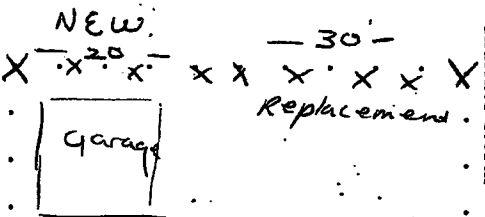 NEW.
— 20 — — 30' —
X x x x x x x x X
Replacemend
Garage